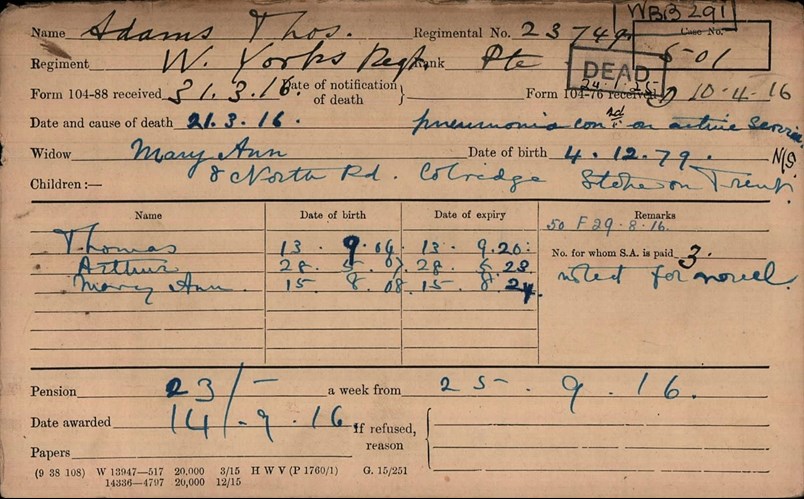 WBB 291
Name Adams Thos. Regimental No. 23749 Case No.
Regiment W. Yorks Regt. Rank Pte 501
DEAD
Form 104-88 received 31.3.16. Date of notification of death Form 104-76 received 10-4-16
Date and cause of death 21.3.16. pneumonia con on active service
Widow Mary Ann Date of birth 4.12.79. N/S
Children:— 8 North Rd. Cobridge Stoke on Trent.
Name Date of birth Date of expiry Remarks
50 F 29.8.16.
Thomas 13. 9. 13. 9.20. No. for whom S.A. is paid 3.
Arthur 28. 5. 07 28. 5. 23 noted for novel
Mary Ann 15. 8. 08. 15. 8. 24.
Pension 23/- a week from 25.9.16.
Date awarded 14/-9.16. If refused, reason
Papers
(9 38 108) W 13947—517 20,000 3/15 H W V (P 1760/1) G. 15/251
14336—4797 20,000 12/15